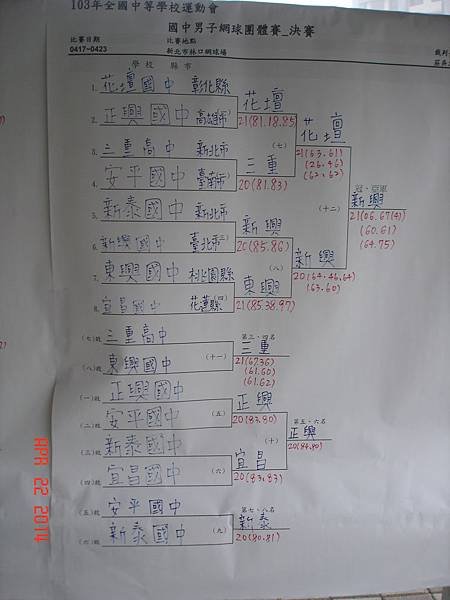 103年全國中等學校運動會
國中男子網球團體賽_決賽
比賽日期 比賽地點
0417~0423 新北市林口網球場
學校 縣市
1. 花壇國中 彰化縣
花壇
2. 正興國中 高雄市 21(81.18.85)
(七) 花壇
3. 三重高中 新北市 21(63.61)
三重 (26.46)
4. 安平國中 臺南市 20(81.83) (62.62)
冠、亞軍
(十二) 新興
5. 新泰國中 新北市 21(06.67(4))
新興 (60.61)
6. 新興國中 臺北市(三) 20(85.86) (64.75)
(八) 新興
7. 東興國中 桃園縣 20(64.46.64)
東興 (63.60)
8. 宜昌國中 花蓮縣(四) 21(85.38.97)
(七)敗 三重高中 第三、四名
(十一) 三重
(八)敗 東興國中 21(67.36)
(61.60)
(61.62)
(一)敗 正興國中
正興
(二)敗 安平國中 (五) 20(83.80)
第五、六名
(十) 正興
(三)敗 新泰國中 20(84.80)
宜昌
(四)敗 宜昌國中 (六) 20(83.83)
(五)敗 安平國中 第七、八名
新泰
(六)敗 新泰國中 (九) 20(80.81)
APR 22 2014